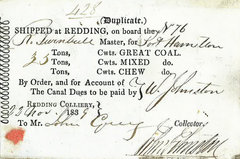 428
(Duplicate.)
SHIPPED at REDDING, on board they No 76
R. Turnbull Master, for Port Hamilton
33 Tons, Cwts. GREAT COAL.
Tons, Cwts. MIXED do.
Tons, Cwts. CHEW do.
By Order, and for Account of
The Canal Dues to be paid by W Johnston
REDDING COLLIERY,
23 Nov. 183
To Mr. John Collector.